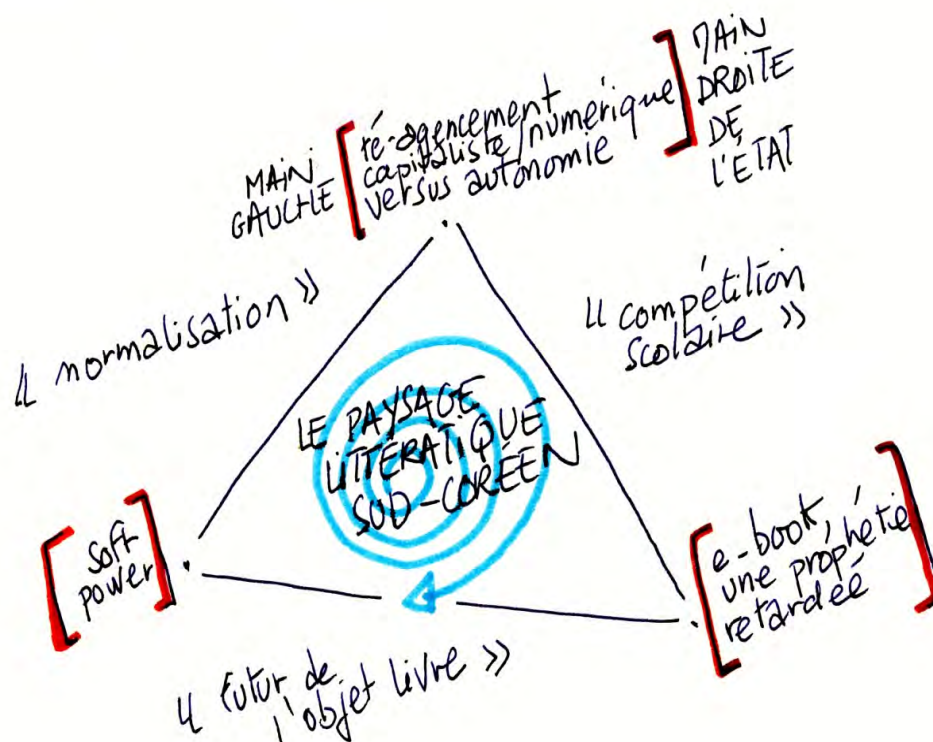 MAIN
GAUCHE
ré-agencement
capitaliste/numérique
versus autonomie
MAIN
DROITE
DE
L'ÉTAT
« normalisation »
« compétition
scolaire »
LE PAYSAGE
LITTÉRATIQUE
SUD-CORÉEN
soft
power
e-book,
une prophétie
retardée
« futur de
l'objet livre »